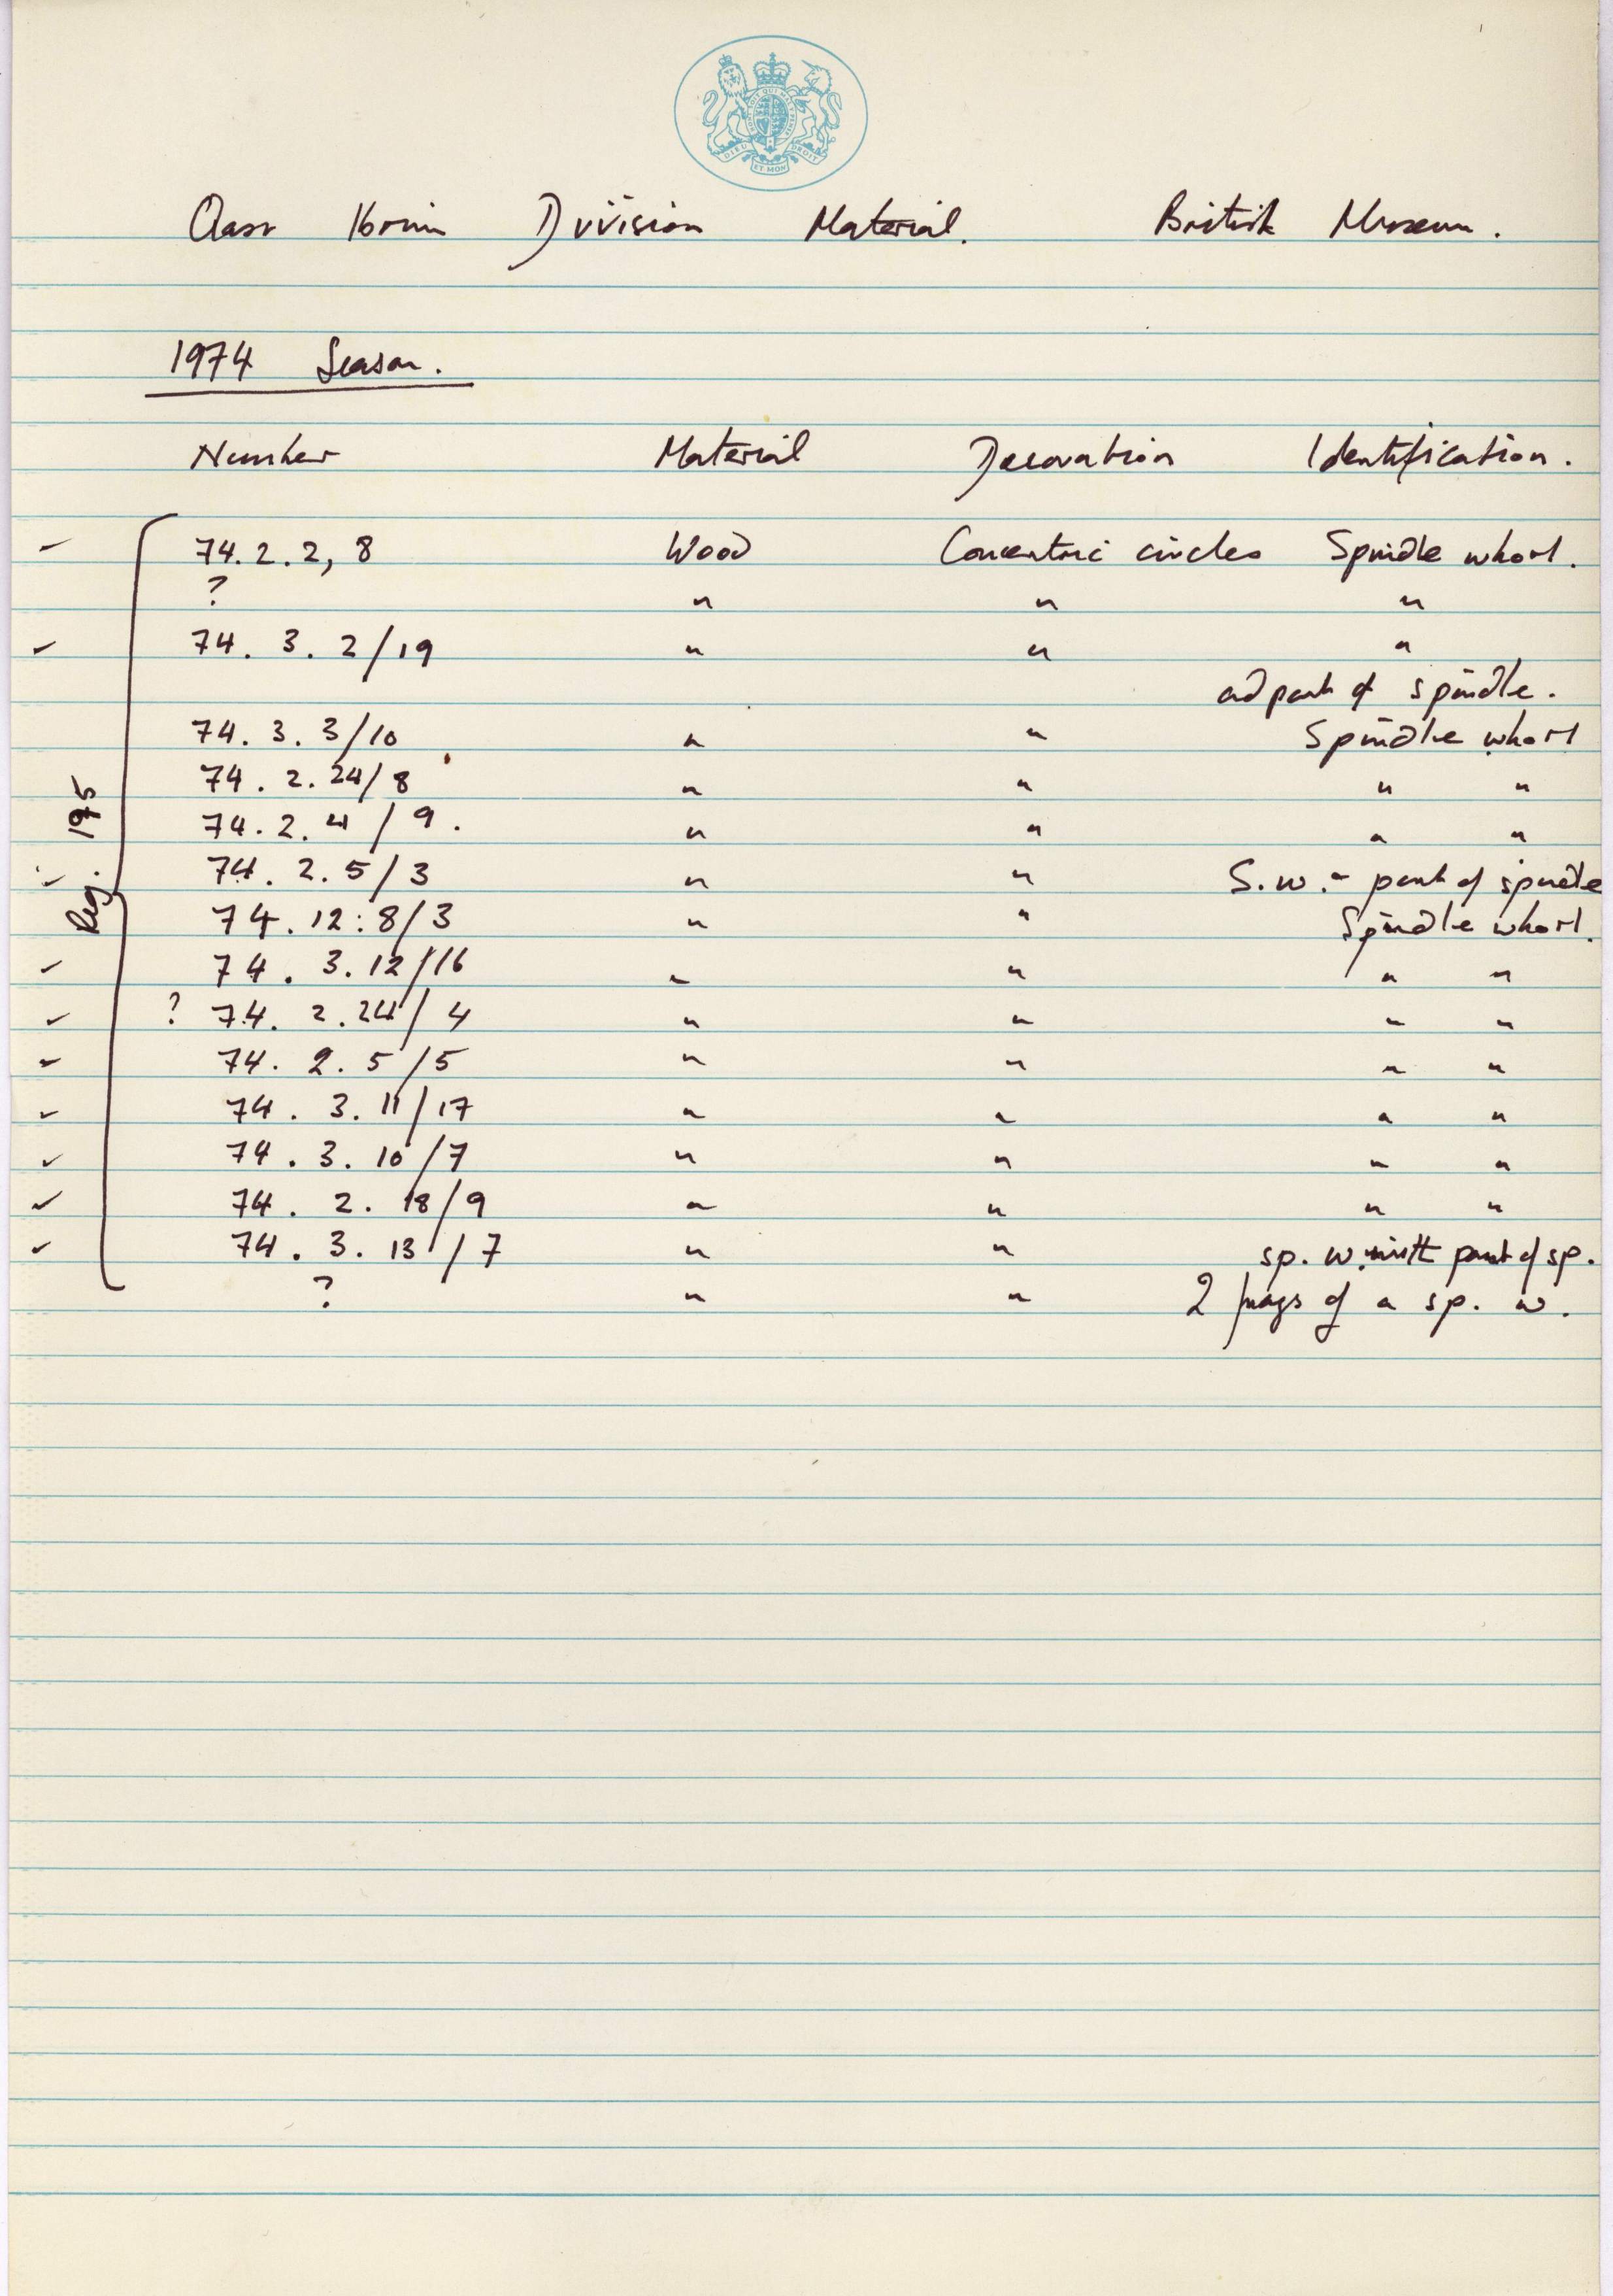 Qasr Ibrim Division Material. British Museum.
1974 Season.
Number Material Decoration Identification.
✓ 74.2.2, 8 Wood Concentric circles Spindle whorl.
? " " "
✓ 74. 3. 2/19 " " "
and part of spindle.
74. 3. 3/10 " " Spindle whorl
74. 2. 24/8 " " " "
74. 2. 4 / 9. " " " "
✓ 74. 2. 5/3 " " S.w. - part of spindle
74. 12: 8/3 " " Spindle whorl.
✓ 74. 3. 12/16 " " " "
✓ ? 74. 2. 24/4 " " " "
✓ 74. 2. 5/5 " " " "
✓ 74. 3. 11/17 " " " "
✓ 74. 3. 10/7 " " " "
✓ 74. 2. 18/9 " " " "
✓ 74. 3. 13/7 " " sp. w. with part of sp.
? " " 2 frags of a sp. w.
Reg. 1975
DIEU ET MON DROIT